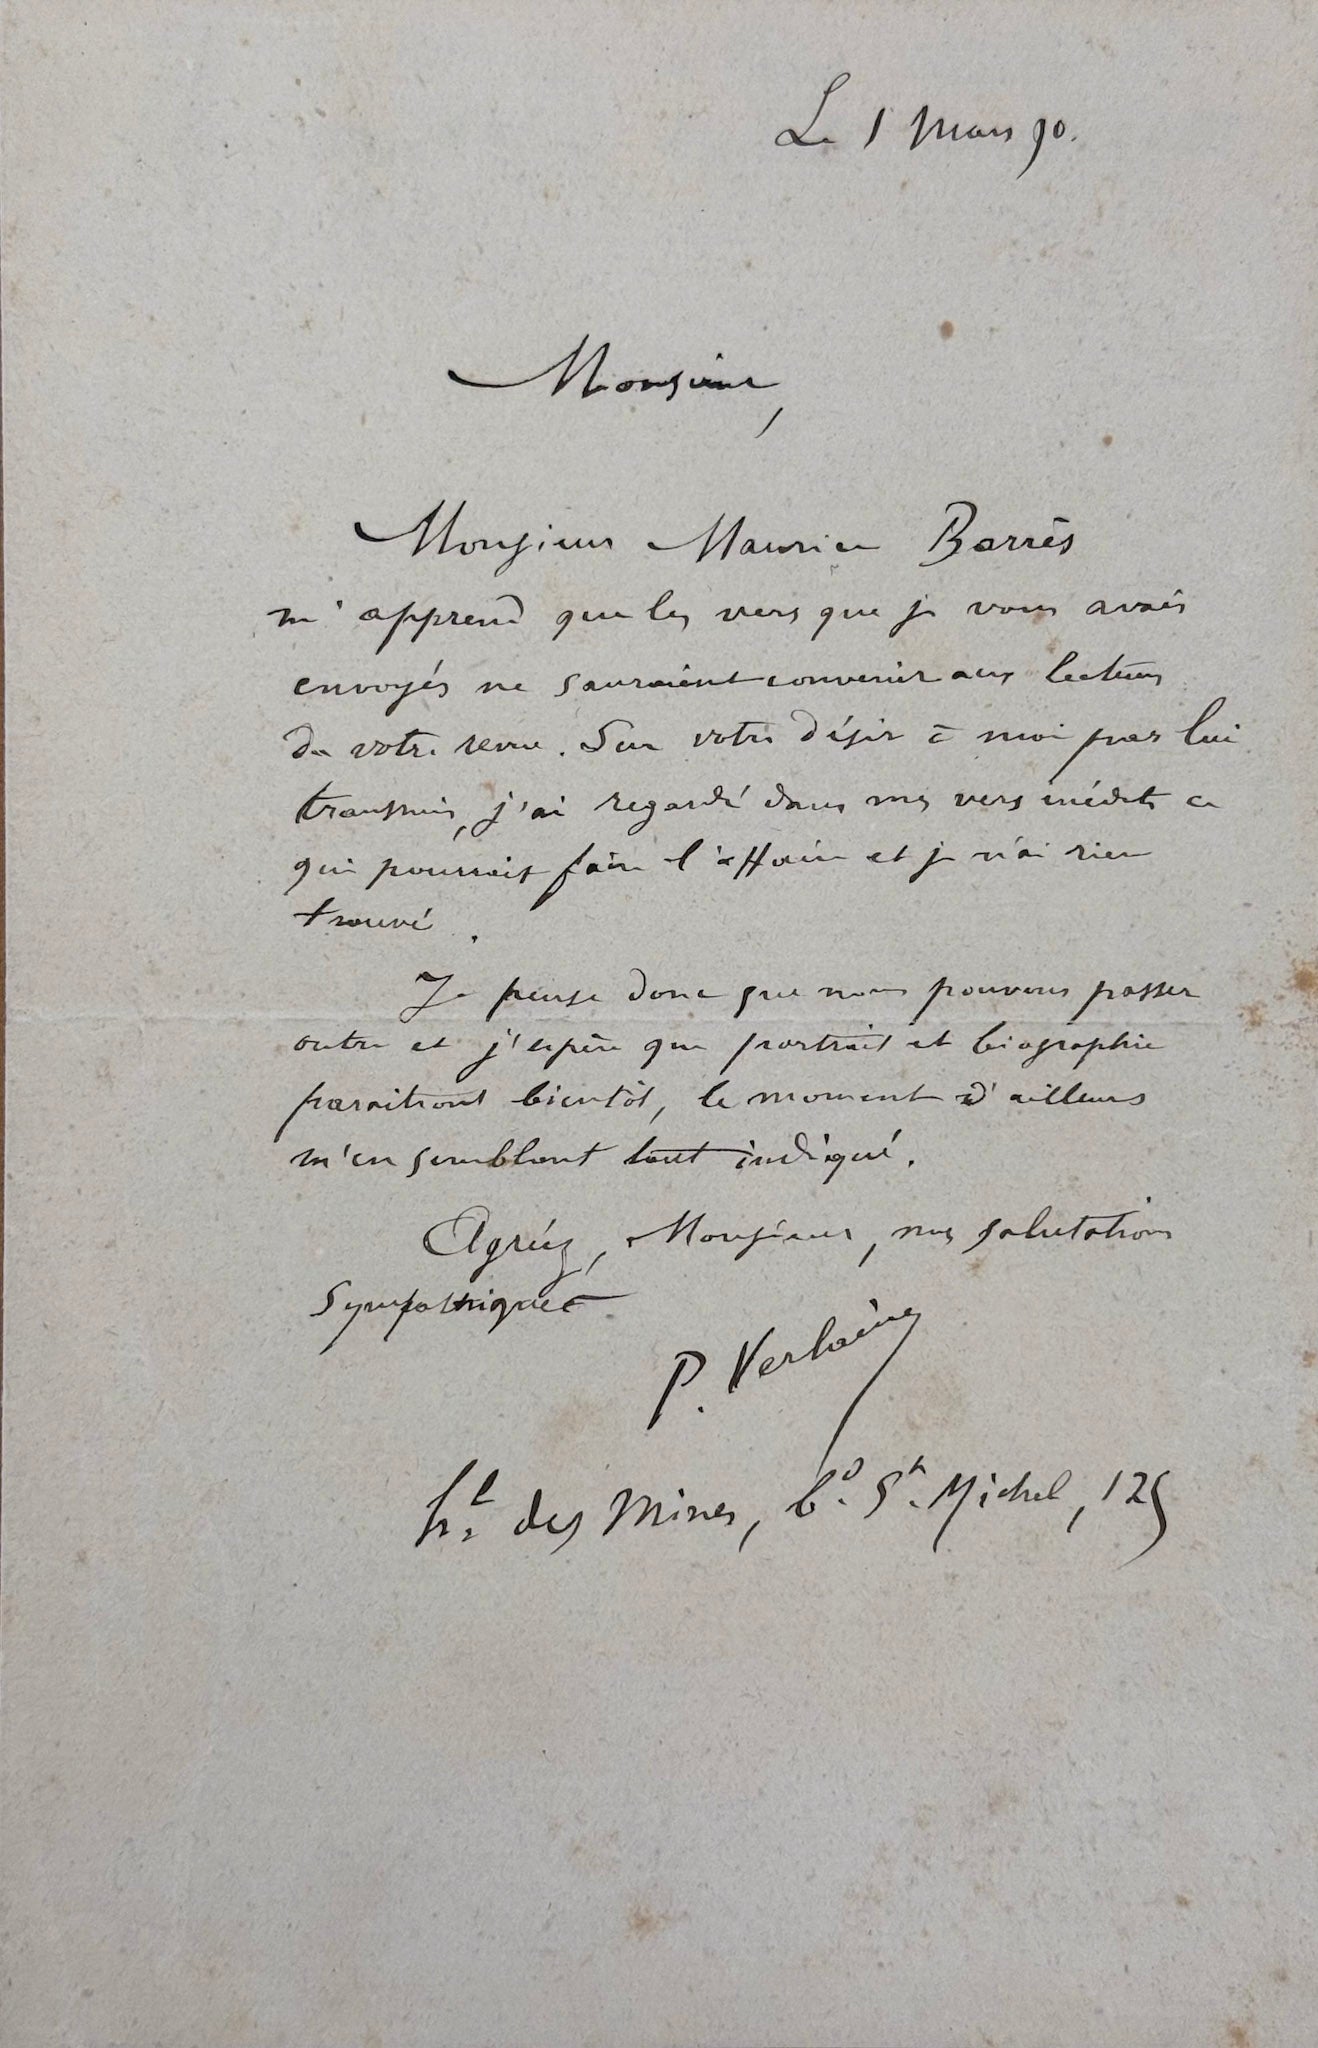 Le 1 Mars 90.
Monsieur,
Monsieur Maurice Barrès
m'apprend que les vers que je vous avais
envoyés ne sauraient convenir aux lecteurs
de votre revue. Sur votre désir à moi par lui
transmis, j'ai regardé dans mes vers inédits ce
qui pourrait faire l'affaire et je n'ai rien
trouvé.
Je pense donc que nous pouvons passer
outre et j'espère que portrait et biographie
paraitront bientôt, le moment d'ailleurs
m'en semblant tout indiqué.
Agréez, Monsieur, mes salutations
sympathiques
P. Verlaine
hl. des Mines, bd. St. Michel, 125